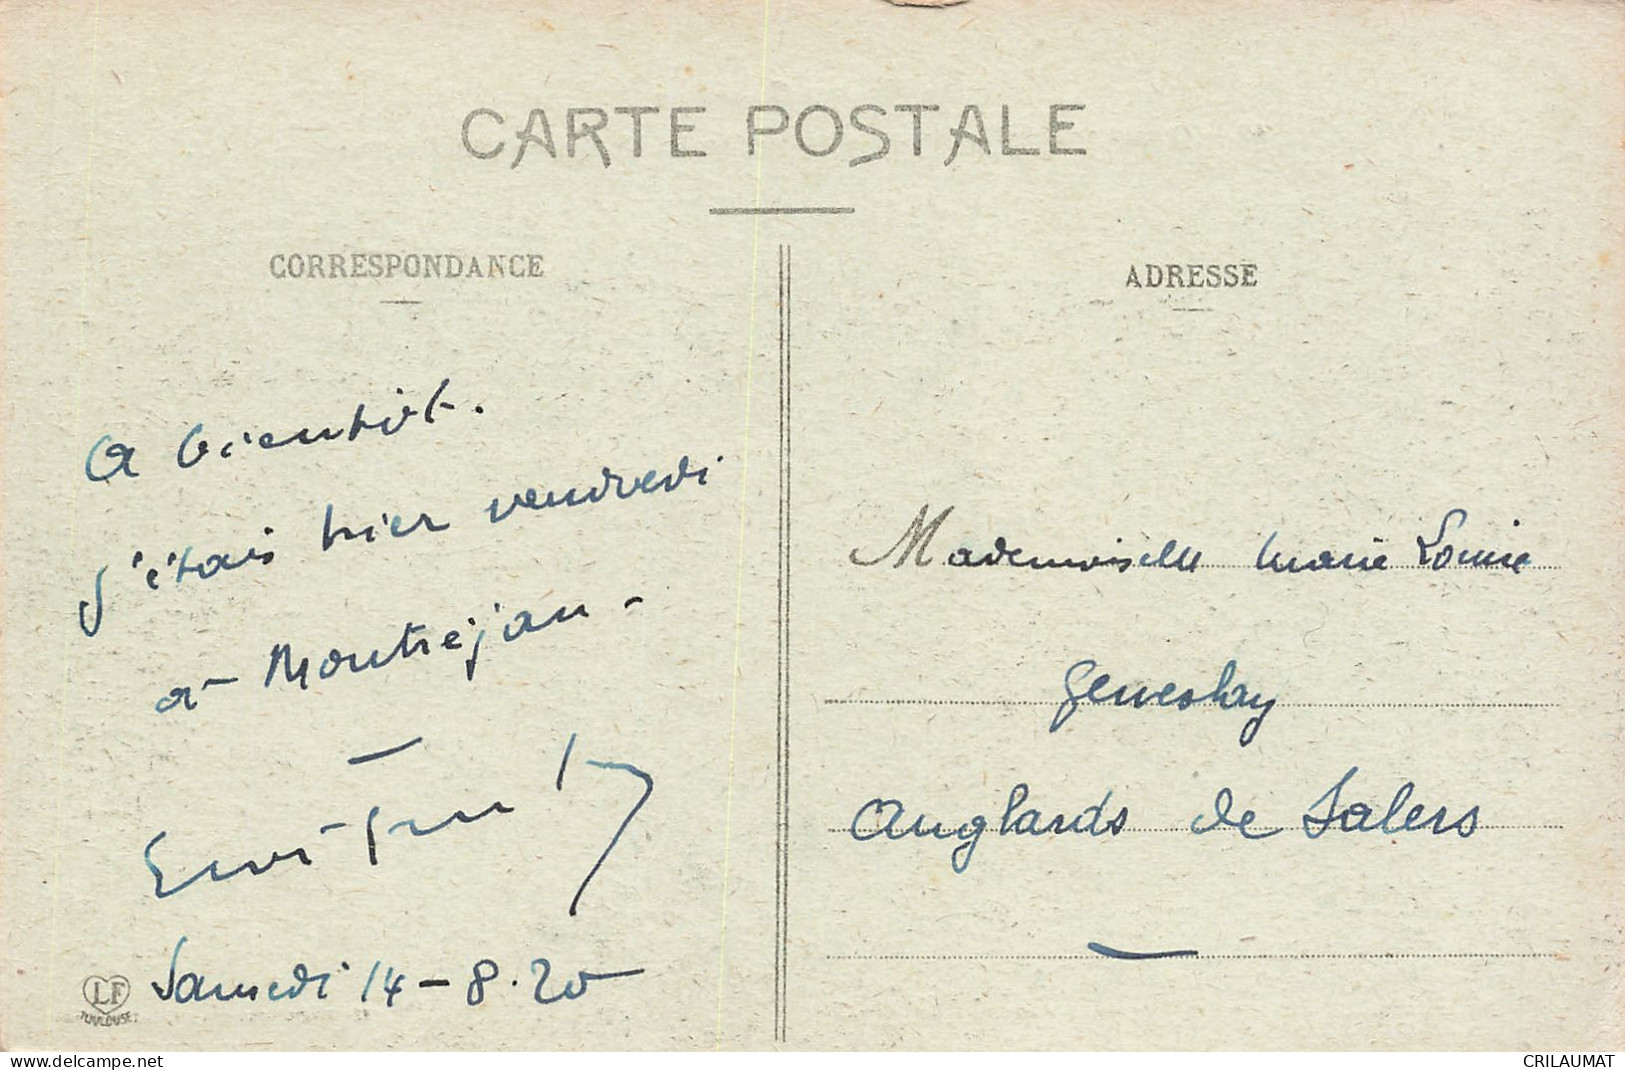 CARTE POSTALE
CORRESPONDANCE
A bientôt.
J'étais hier vendredi
à Montréjau -
Samedi 14 - 8. 20
LF
TOULOUSE
ADRESSE
Mademoiselle Marie Louise
Anglards de Salers
www.delcampe.net
CRILAUMAT